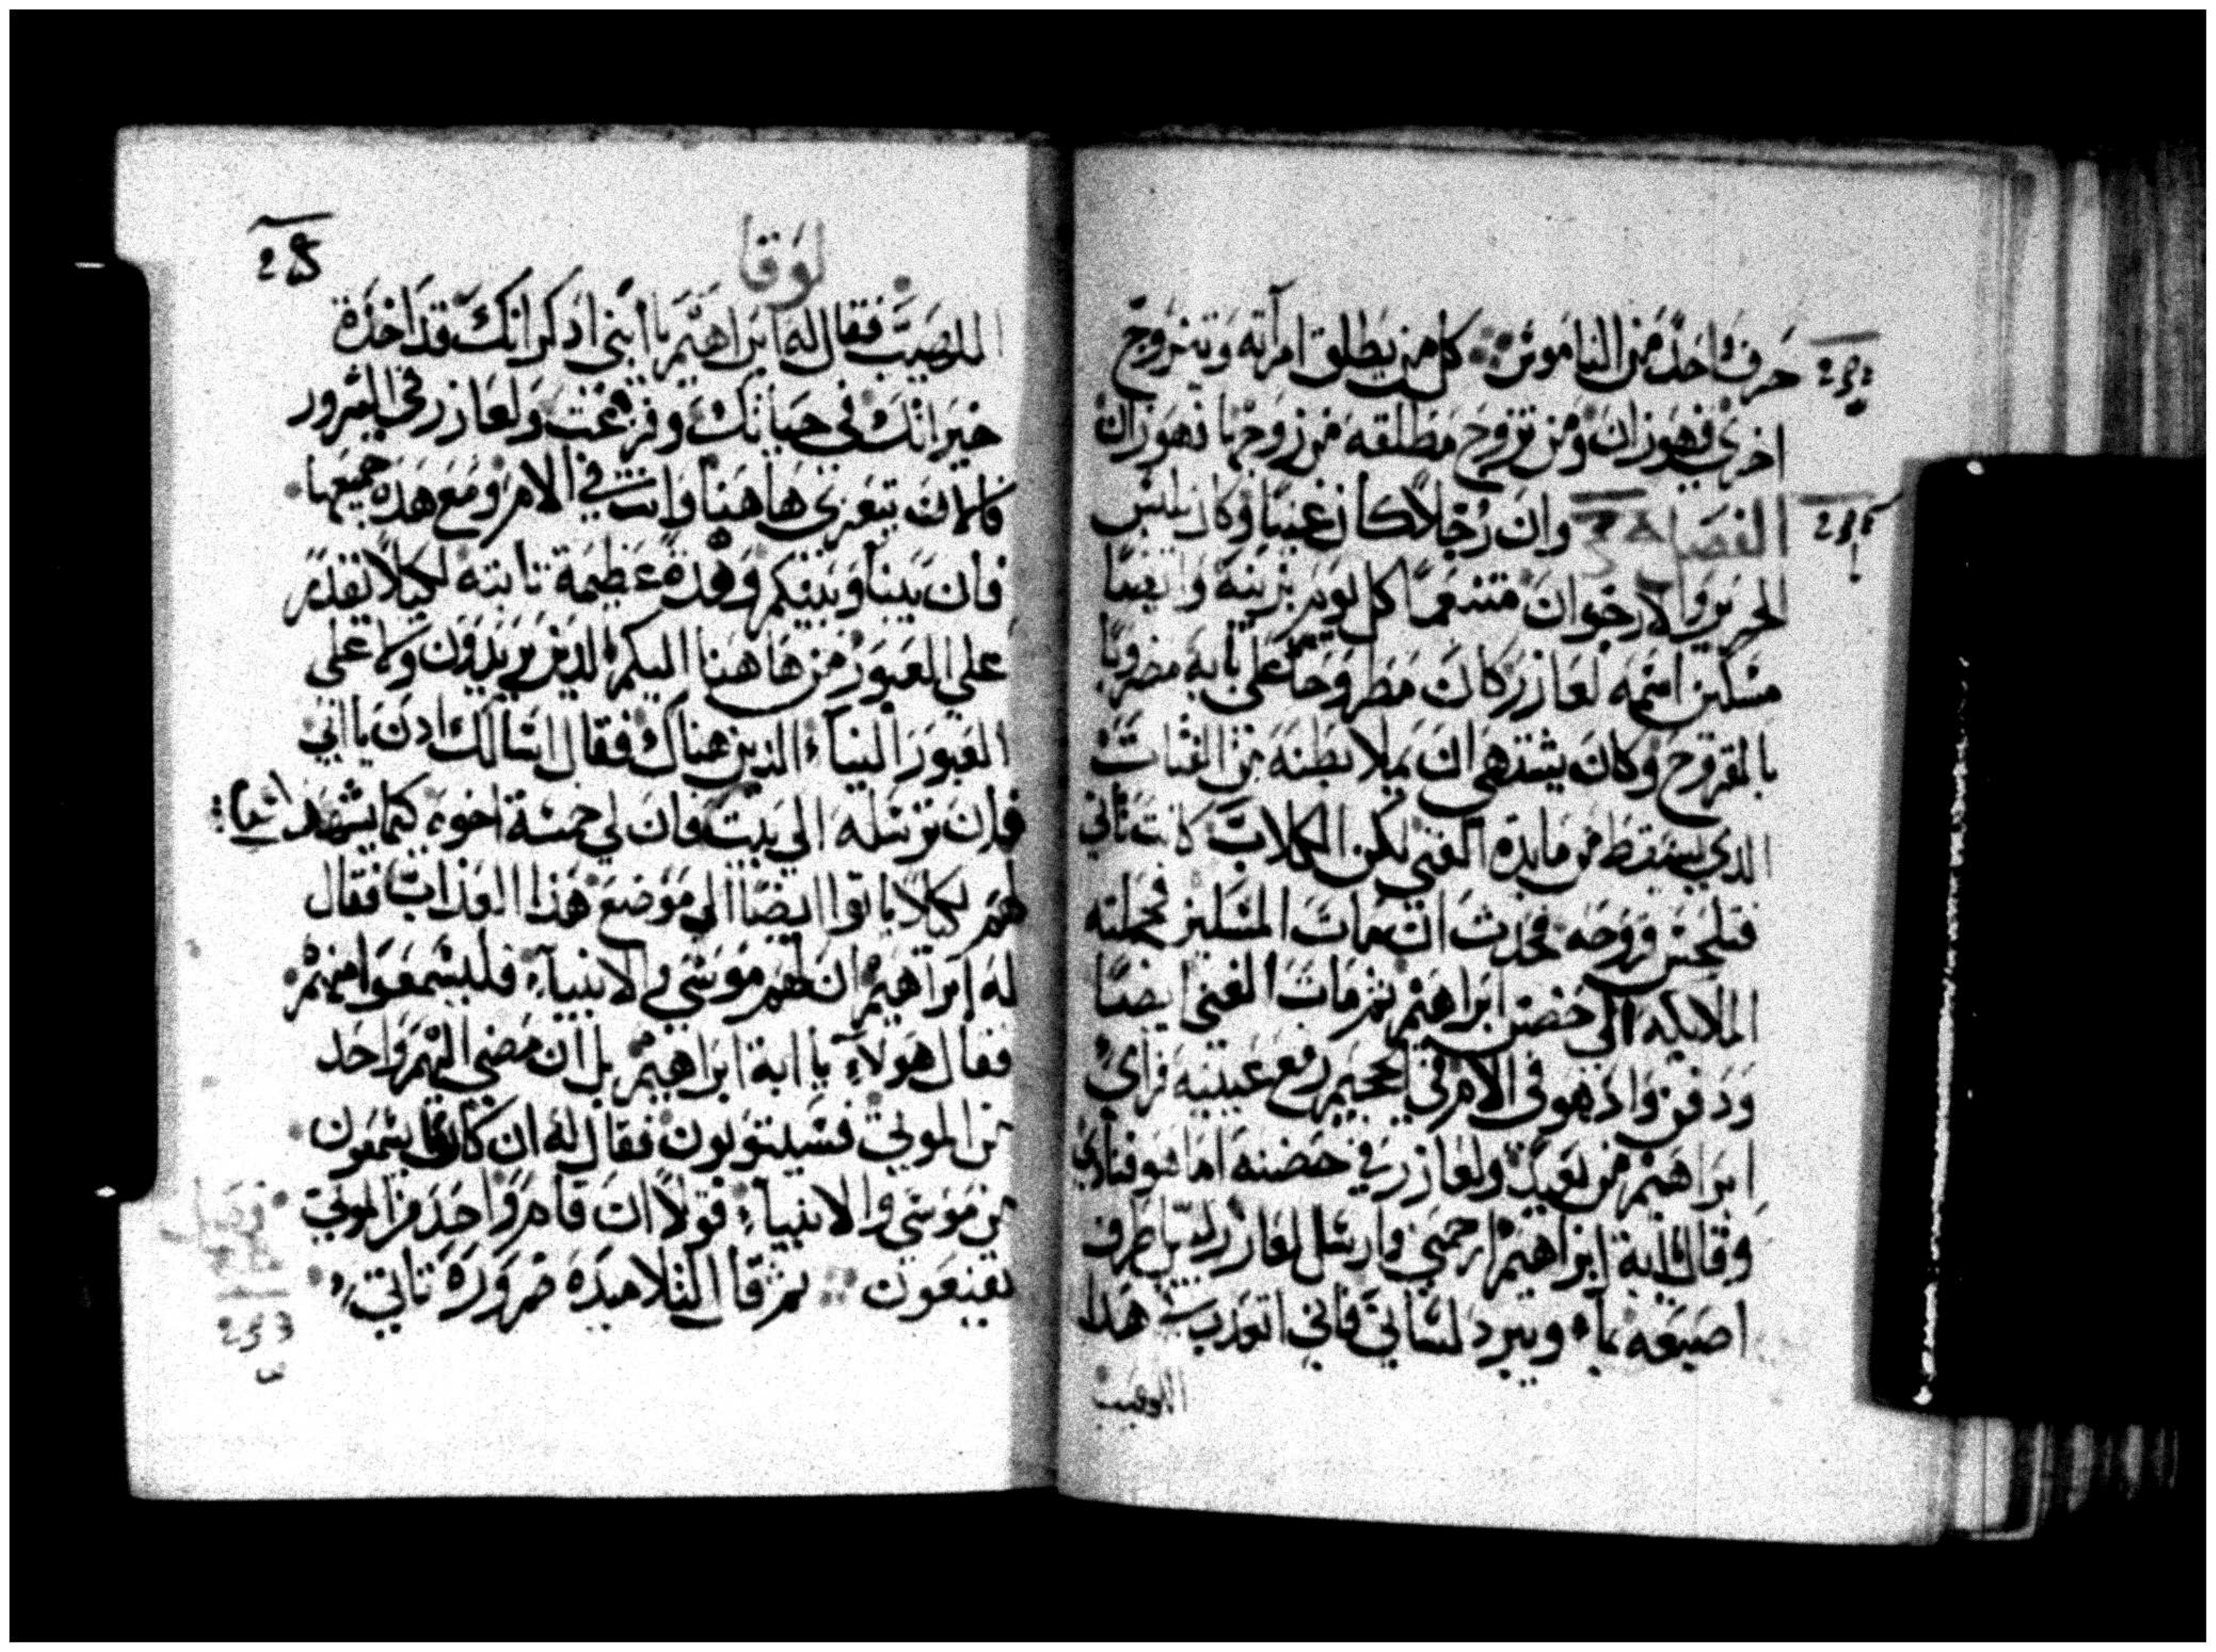 حرف واحد من الناموس كل من يطلق امرأته ويتزوج
اخري فهو زان ومن تزوج مطلقه من زوجها فهو زان
الفصل وان رجلاً كان غنيا وكان يلبس
الحرير والارجوان متنعماً كل يوم بزينة وايضا
مسكين اسمه لعازر كان مطروحا علي بابه مضروبا
بالقروح وكان يشتهي ان يملا بطنه من الفتات
الدي يسقط من مايدة الغني لكن الكلاب كانت تاتي
فتلحس قروحه فحدث ان مات المسكين فحملته
الملايكه الي حضن ابراهيم ثم مات الغني ايضا
ودفن واذ هو في الامر في الجحيم رفع عينيه فراي
ابراهيم من بعيد ولعازر في حضنه اما هو فنادي
وقال يا ابة ابراهيم ارحمني وارسل لعازر ليبل طرف
اصبعه بماء ويبرد لساني فاني اتعدب في هدا
اللهيب
لوقا
اللهيب فقال له ابراهيم يا ابني ادكر انك قد اخدة
خيراتك في حياتك وفرغت ولعازر في الشرور
فالان يتعزي هاهنا وانت في الامر ومع هده جميعها
فان بيننا وبينكم وهدة عظيمة تابته لكيلا تقدر
علي العبور من هاهنا اليكم الدين يريدون ولا علي
العبور الينا الذين هناك فقال اسالك ادن يا ابي
فان ترسله الي بيت فان لي خمسة اخوه كيما يشهد
لهم لكيلا ياتوا ايضا الي موضع هذا العذاب فقال
له ابراهيم ان لهم موسي والانبياء فليسمعوا منهم
فقال هو لا يا ابة ابراهيم بل ان مضي اليهم واحد
من الموتي فسيتوبون فقال له ان كانوا يسمعون
من موسي والانبياء فولا ان قام واحد من الموتي
يقنعون ثم قال لتلاميده ضرورة تاتي